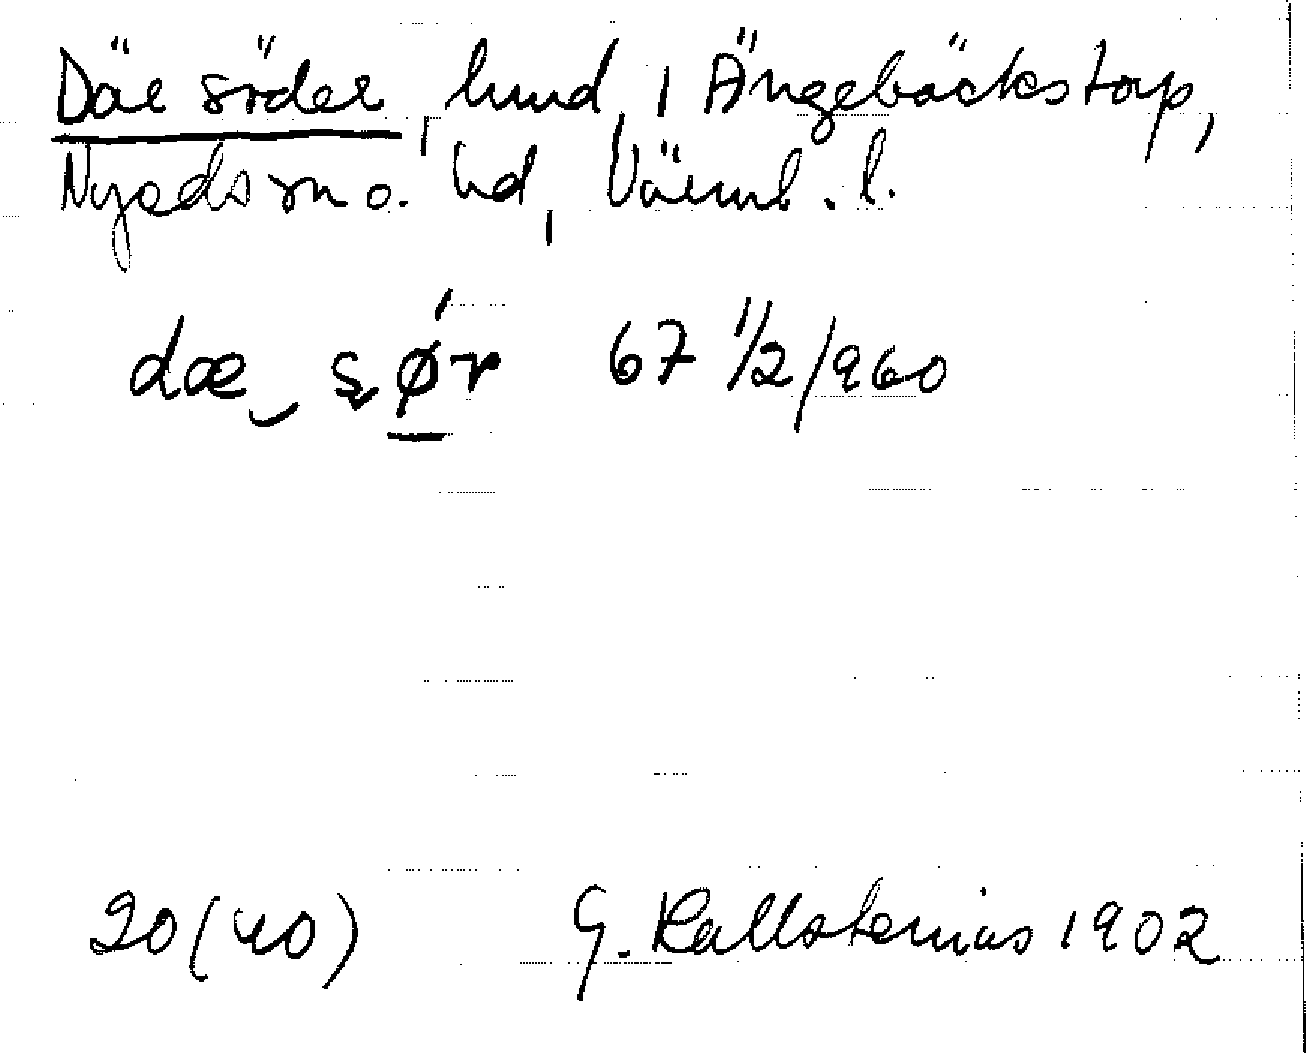 Där söder, hmd i Ängebäckstorp,
Nyeds sn o. hd, Värml. l.
dæ sør 67 1/2/960
20(40) G. Kallstenius 1902